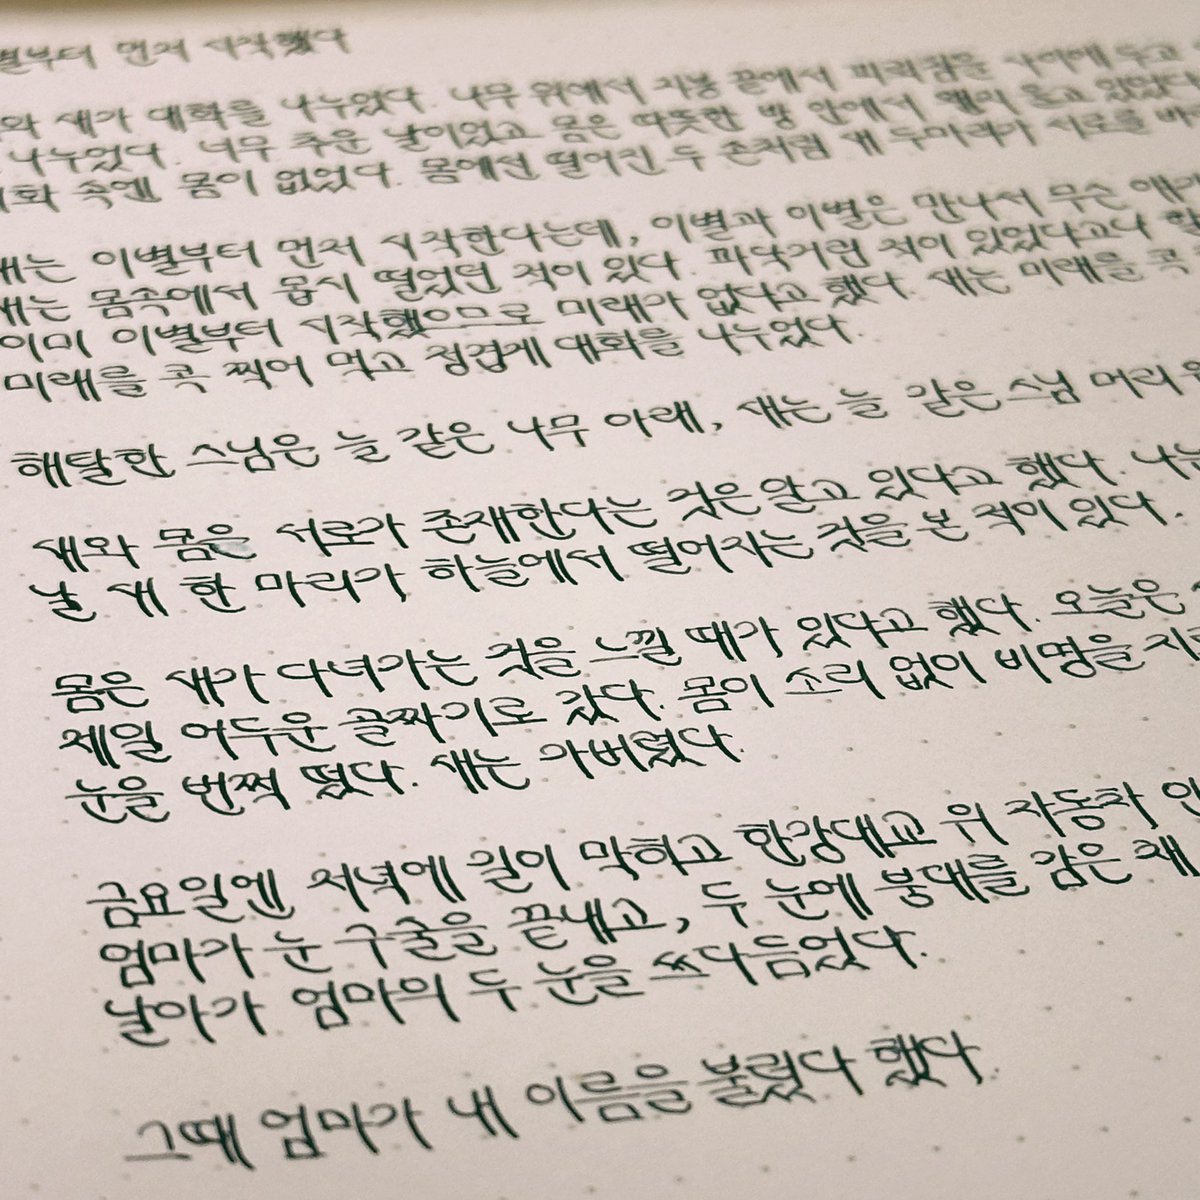 별부터 먼저 시작했다
와 새가 대화를 나누었다. 나무 위에서 지붕 끝에서 사이에 두고
나누었다. 너무 추운 날이었고 몸은 따뜻한 방 안에서 웬지 울고 있었다
화 속엔 몸이 없었다. 몸에선 떨어진 두 손처럼 새 두마리가 서로를 바
새는 이별부터 먼저 시작한다는데, 이별과 이별은 만나서 무슨 얘기
새는 몸속에서 몹시 떨었던 적이 있다. 파닥거린 적이 있었다고나 할
이미 이별부터 시작했으므로 미래가 없다고 했다. 새는 미래를 콕
미래를 콕 찍어 먹고 정겹게 대화를 나누었다.
해탈한 스님은 늘 같은 나무 아래, 새는 늘 같은 스님 머리 위
새와 몸은 서로가 존재한다는 것은 알고 있다고 했다. 나는
날 새 한 마리가 하늘에서 떨어지는 것을 본 적이 있다.
몸은 새가 다녀가는 것을 느낄 때가 있다고 했다. 오늘은
제일 어두운 골짜기로 갔다. 몸이 소리 없이 비명을 지르
눈을 번쩍 떴다. 새는 가버렸다.
금요일엔 저녁에 길이 막히고 한강대교 위 자동차 안
엄마가 눈 구술을 끝내고, 두 눈에 붕대를 감은 채
날아가 엄마의 두 눈을 쓰다듬었다.
그때 엄마가 내 이름을 불렀다 했다.